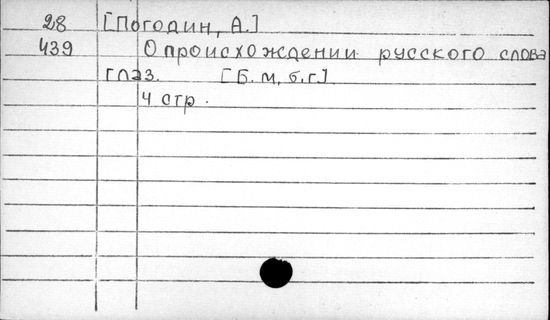 28 [Погодин, А.]
439 О происхождении русского слова
глаз. [Б. м, б. г]
4 стр.